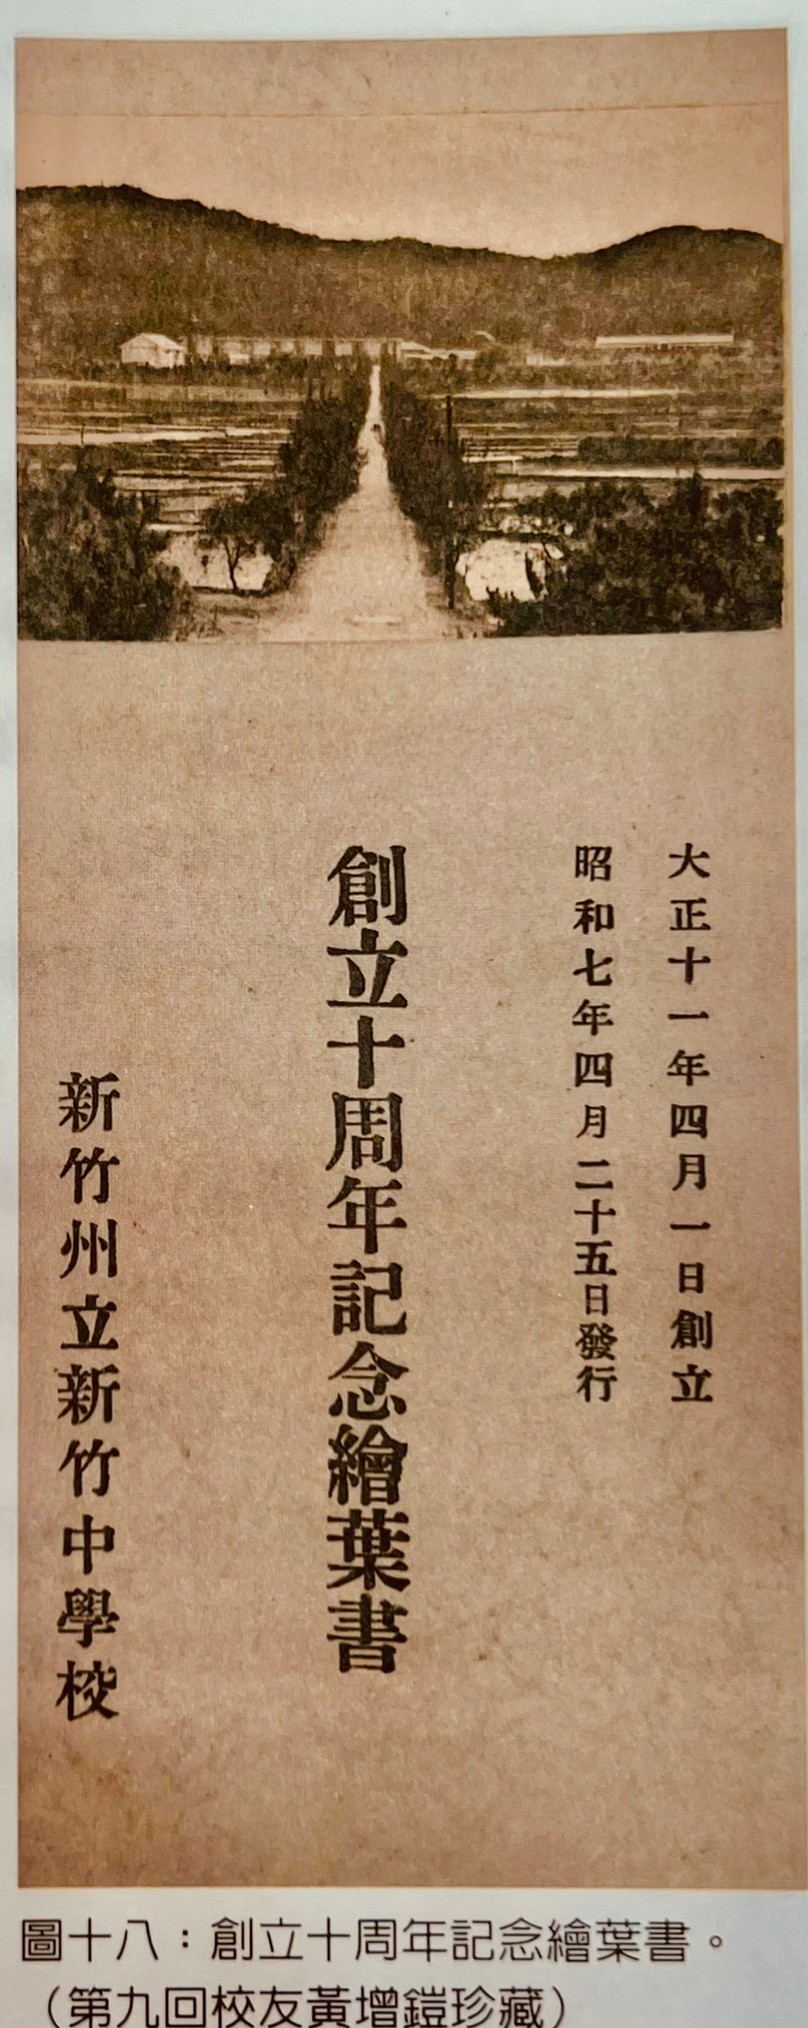 大正十一年四月一日創立
昭和七年四月二十五日發行
創立十周年記念繪葉書
新竹州立新竹中學校
圖十八：創立十周年記念繪葉書。
（第九回校友黃增鎧珍藏）